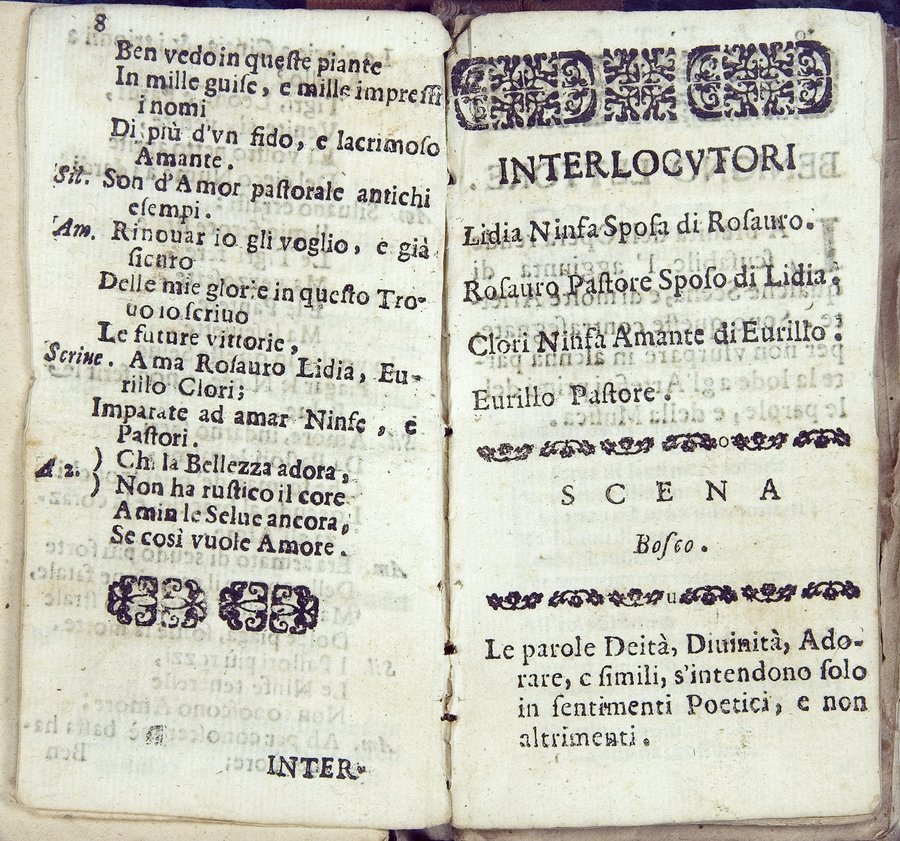 8
Ben vedo in queſte piante
In mille guiſe, e mille impreſſi
i nomi
Di più d'vn fido, e lacrimoſo
Amante.
Sil. Son d'Amor paſtorale antichi
eſempi.
Am. Rinouar io gli voglio, e già
ſicuro
Delle mie glorie in queſto Tro-
uo io ſcriuo
Le future vittorie,
Scriue. Ama Roſauro Lidia, Eu-
rillo Clori;
Imparate ad amar Ninfe, e
Paſtori.
A 2. ) Chi la Bellezza adora,
) Non ha ruſtico il core
Amin le Selue ancora,
Se così vuole Amore.
INTER-
INTERLOCVTORI
Lidia Ninfa Spoſa di Roſauro.
Roſauro Paſtore Spoſo di Lidia.
Clori Ninfa Amante di Eurillo.
Eurillo Paſtore.
SCENA
Boſco.
Le parole Deità, Diuinità, Ado-
rare, e ſimili, s'intendono ſolo
in ſentimenti Poetici, e non
altrimenti.